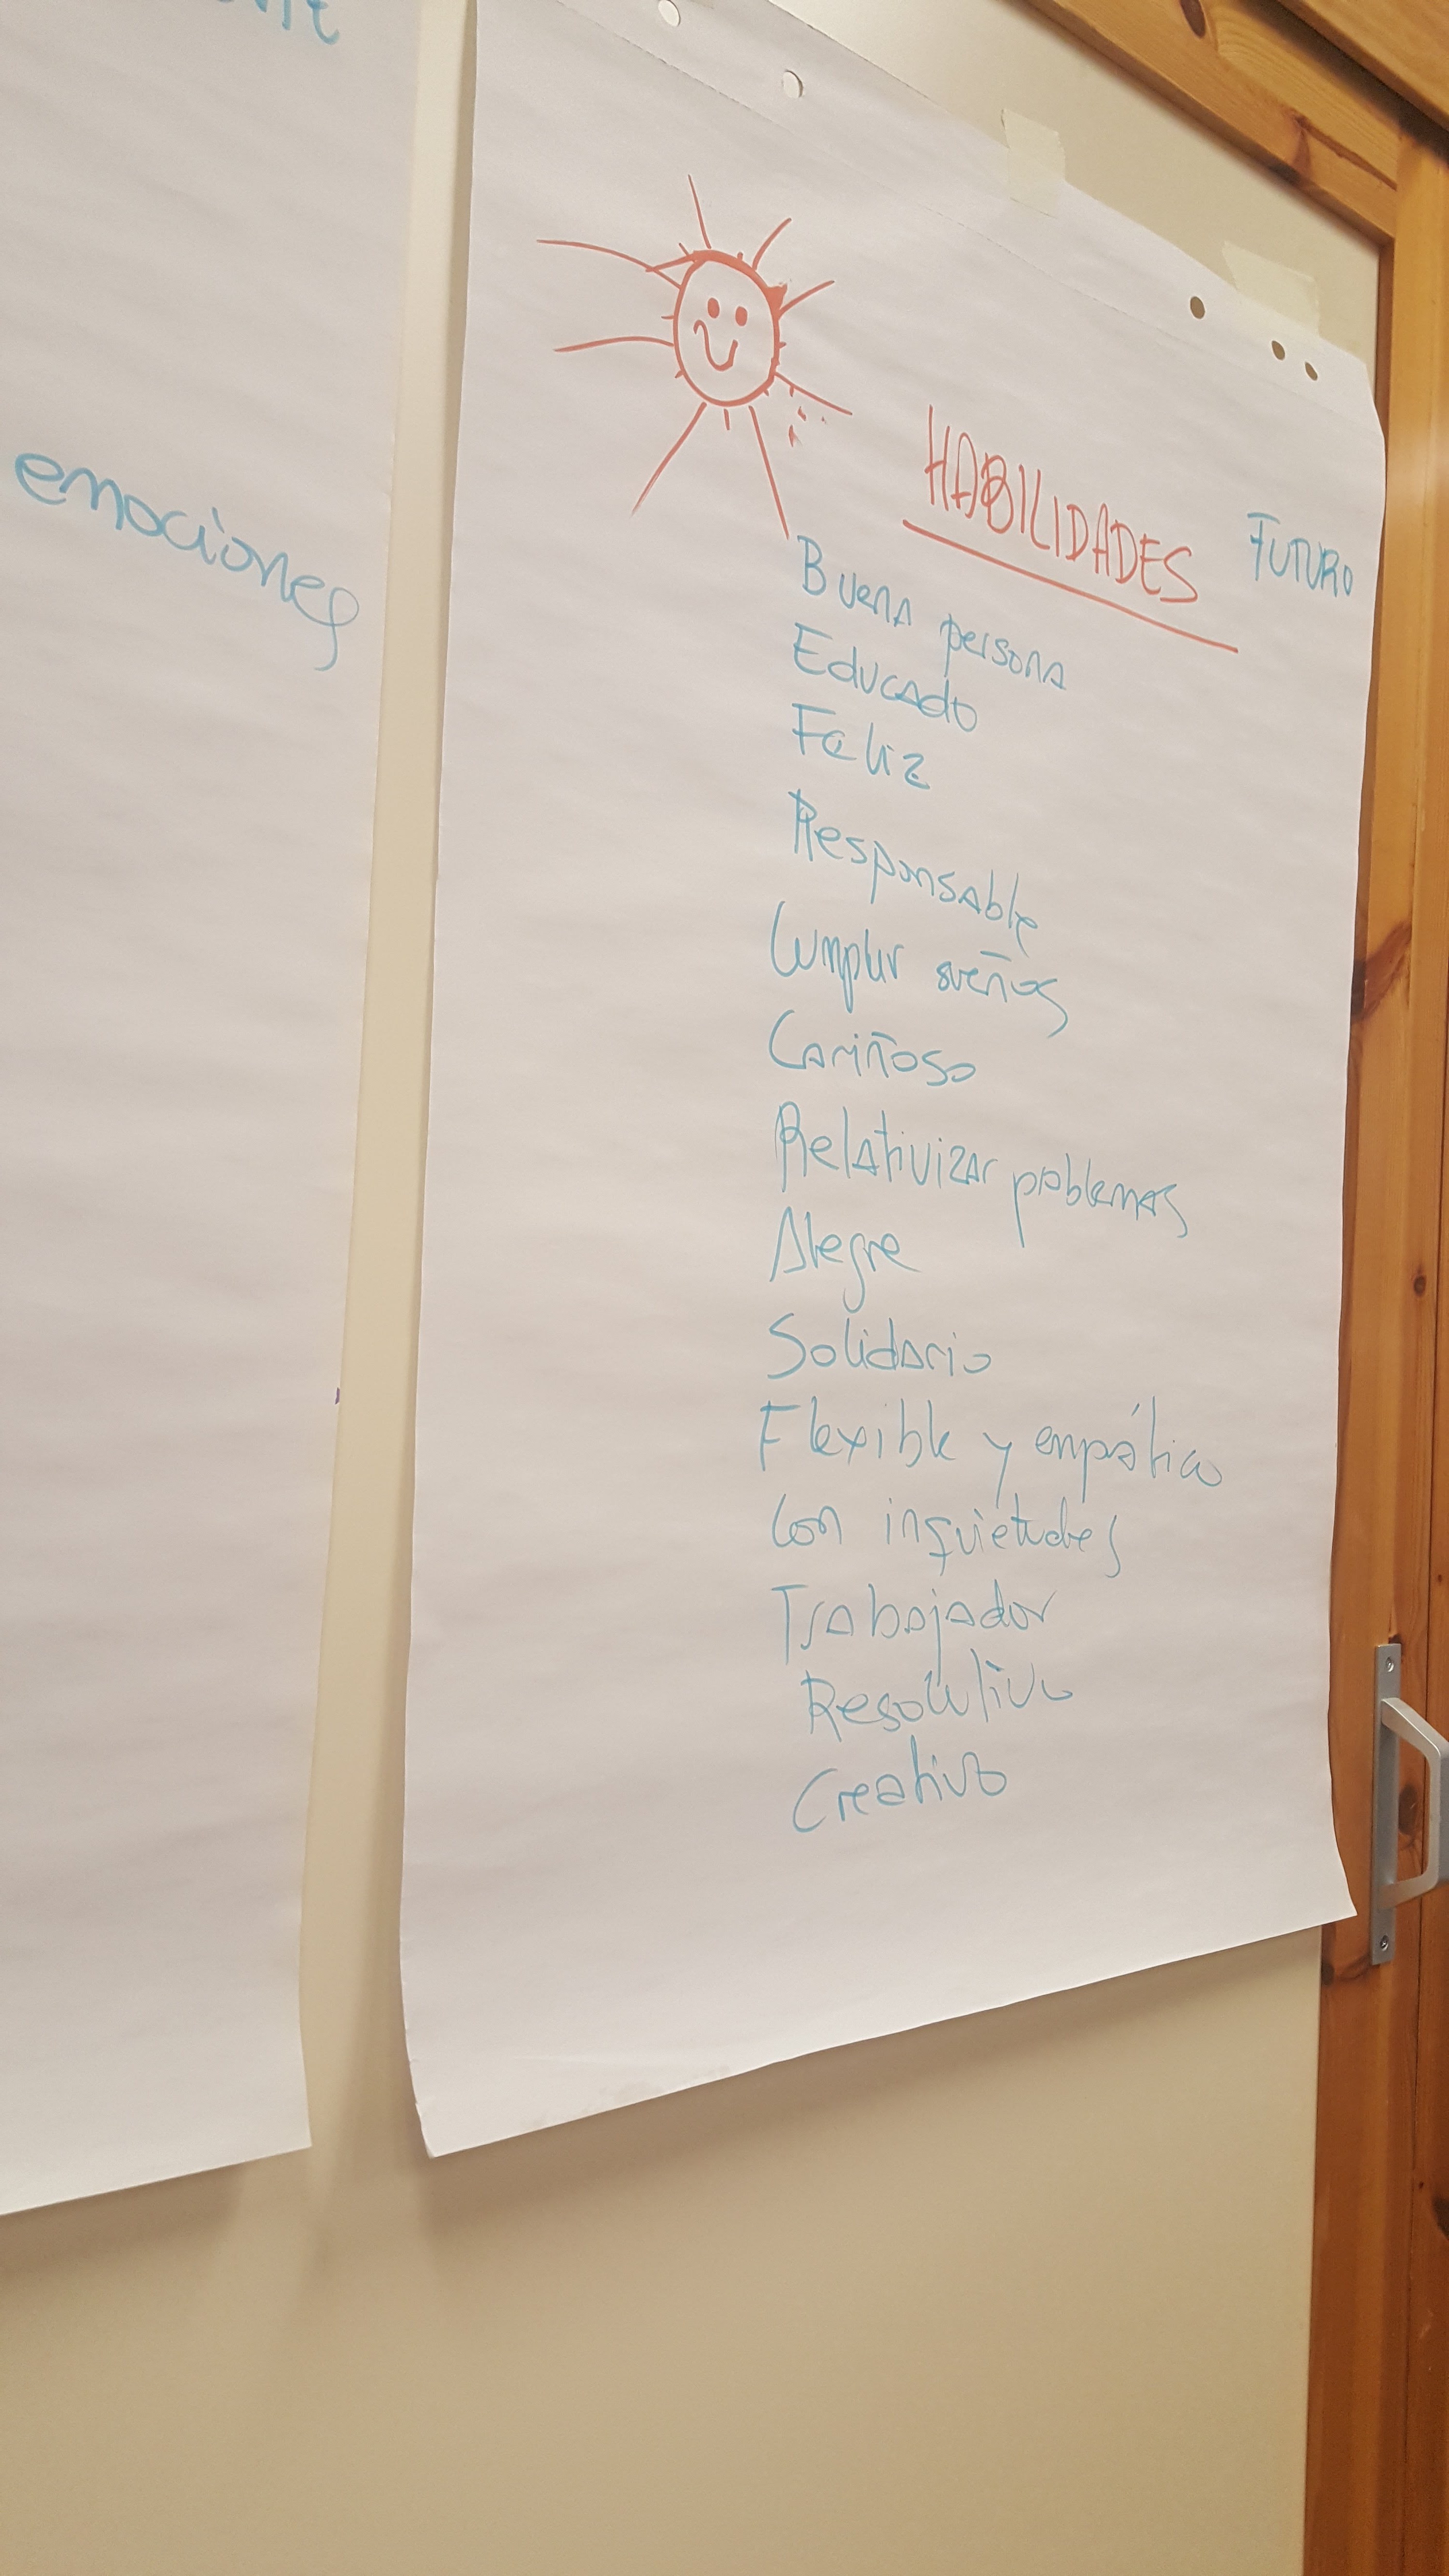 emociones
HABILIDADES FUTURO
Buena persona
Educado
Feliz
Responsable
Cumplir sueños
Cariñoso
Relativizar problemas
Alegre
Solidario
Flexible y empático
Con inquietudes
Trabajador
Resolutivo
Creativo